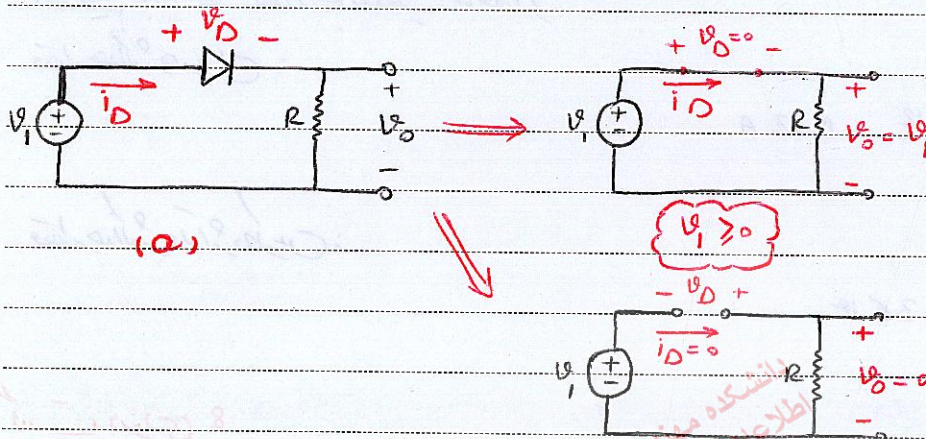 + v_D -
i_D
v_1
+
-
R
+
v_o
-
(a)
+ v_D=0 -
i_D
v_1
+
-
R
+
v_o = v_1
-
v_1 ≥ 0
- v_D +
i_D=0
v_1
+
-
R
+
v_o = 0
-
دانشکده